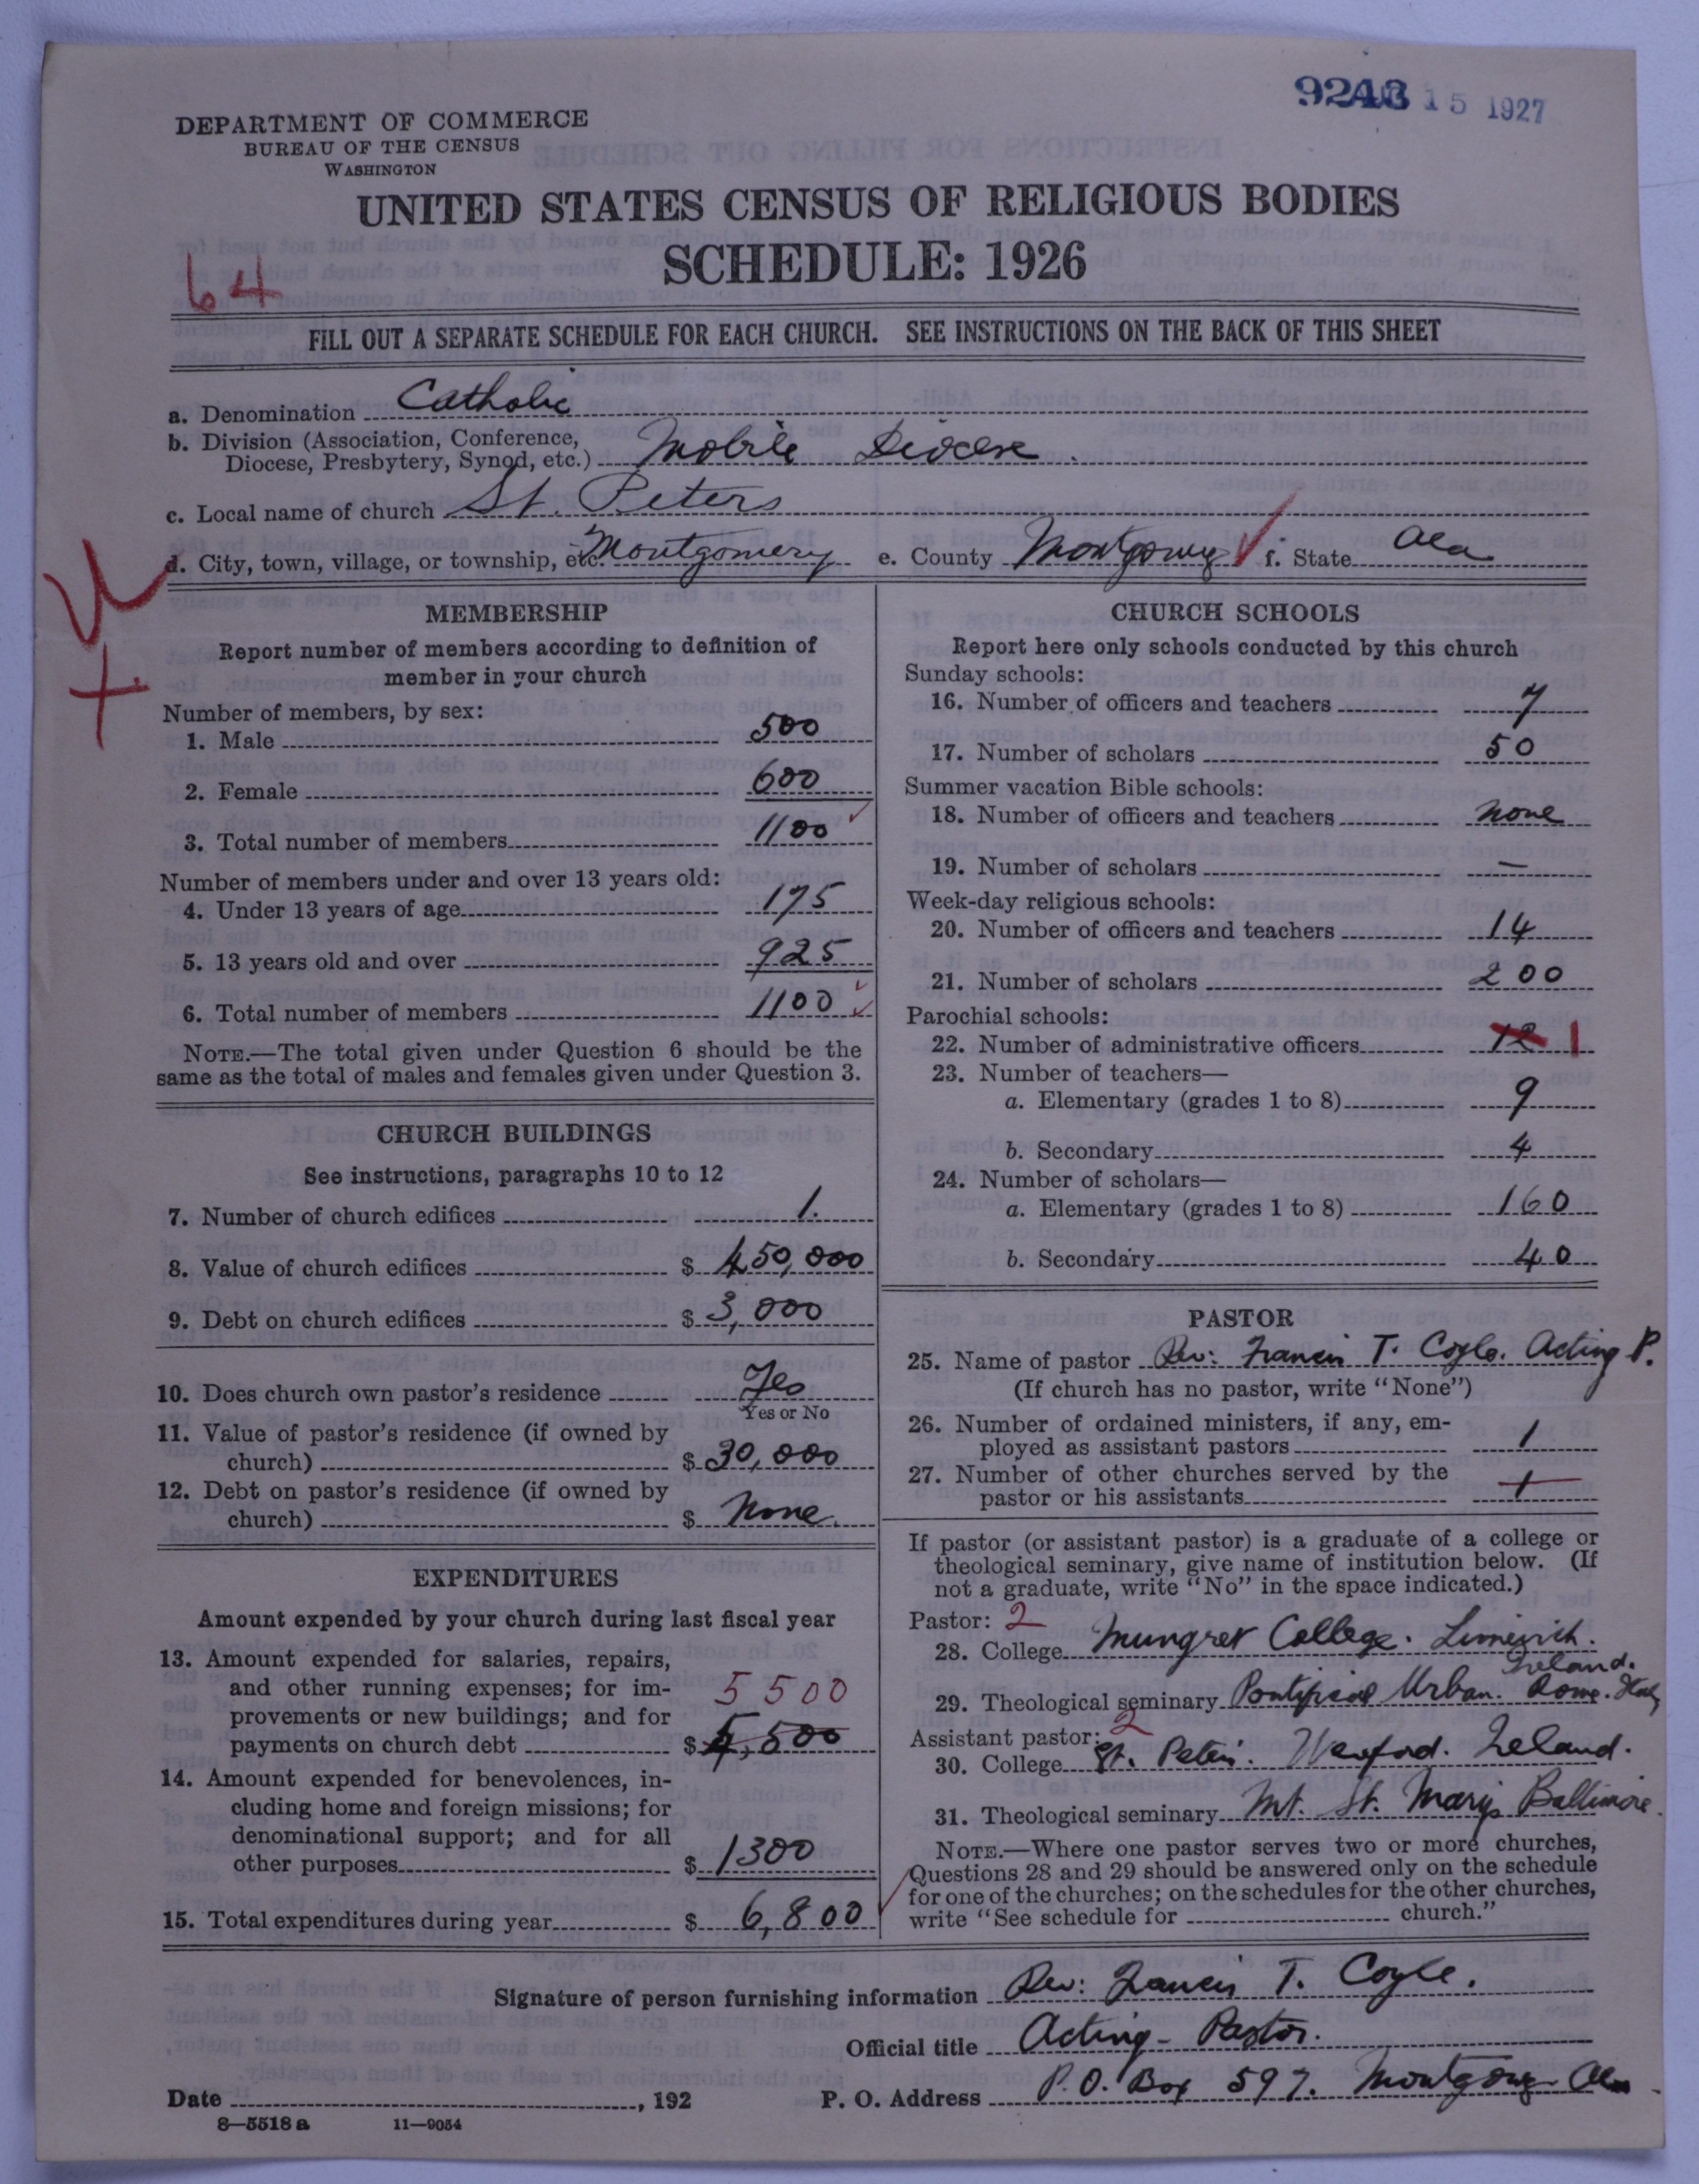 9243 15 1927
DEPARTMENT OF COMMERCE
BUREAU OF THE CENSUS
WASHINGTON
UNITED STATES CENSUS OF RELIGIOUS BODIES
SCHEDULE: 1926
64
FILL OUT A SEPARATE SCHEDULE FOR EACH CHURCH. SEE INSTRUCTIONS ON THE BACK OF THIS SHEET
a. Denomination Catholic
b. Division (Association, Conference,
Diocese, Presbytery, Synod, etc.) Mobile Diocese.
c. Local name of church St. Peters
d. City, town, village, or township, etc. Montgomery e. County Montgomery f. State Ala
MEMBERSHIP
Report number of members according to definition of
member in your church
Number of members, by sex:
1. Male 500
2. Female 600
3. Total number of members 1100
Number of members under and over 13 years old:
4. Under 13 years of age 175
5. 13 years old and over 925
6. Total number of members 1100
NOTE.—The total given under Question 6 should be the
same as the total of males and females given under Question 3.
CHURCH BUILDINGS
See instructions, paragraphs 10 to 12
7. Number of church edifices 1.
8. Value of church edifices $ 450,000
9. Debt on church edifices $ 3,000
10. Does church own pastor's residence Yes
Yes or No
11. Value of pastor's residence (if owned by
church) $ 30,000
12. Debt on pastor's residence (if owned by
church) $ None.
EXPENDITURES
Amount expended by your church during last fiscal year
13. Amount expended for salaries, repairs,
and other running expenses; for im-
provements or new buildings; and for 5500
payments on church debt $ 5,500
14. Amount expended for benevolences, in-
cluding home and foreign missions; for
denominational support; and for all
other purposes $ 1300
15. Total expenditures during year $ 6,800
CHURCH SCHOOLS
Report here only schools conducted by this church
Sunday schools:
16. Number of officers and teachers 7
17. Number of scholars 50
Summer vacation Bible schools:
18. Number of officers and teachers None
19. Number of scholars —
Week-day religious schools:
20. Number of officers and teachers 14
21. Number of scholars 200
Parochial schools:
22. Number of administrative officers 12 1
23. Number of teachers—
a. Elementary (grades 1 to 8) 9
b. Secondary 4
24. Number of scholars—
a. Elementary (grades 1 to 8) 160
b. Secondary 40
PASTOR
25. Name of pastor Rev: Francis T. Coyle. Acting P.
(If church has no pastor, write "None")
26. Number of ordained ministers, if any, em-
ployed as assistant pastors 1
27. Number of other churches served by the
pastor or his assistants 1
If pastor (or assistant pastor) is a graduate of a college or
theological seminary, give name of institution below. (If
not a graduate, write "No" in the space indicated.)
Pastor: 2
28. College Mungret College. Limerick.
Ireland.
29. Theological seminary Pontifical Urban. Rome. Italy
Assistant pastor: 2
30. College St. Peters. Wexford. Ireland.
31. Theological seminary Mt. St. Marys Baltimore.
NOTE.—Where one pastor serves two or more churches,
Questions 28 and 29 should be answered only on the schedule
for one of the churches; on the schedules for the other churches,
write "See schedule for church."
Signature of person furnishing information Rev: Francis T. Coyle.
Official title Acting- Pastor.
Date , 192 P. O. Address P.O. Box 597. Montgomery Ala
8—5518 a 11—9054